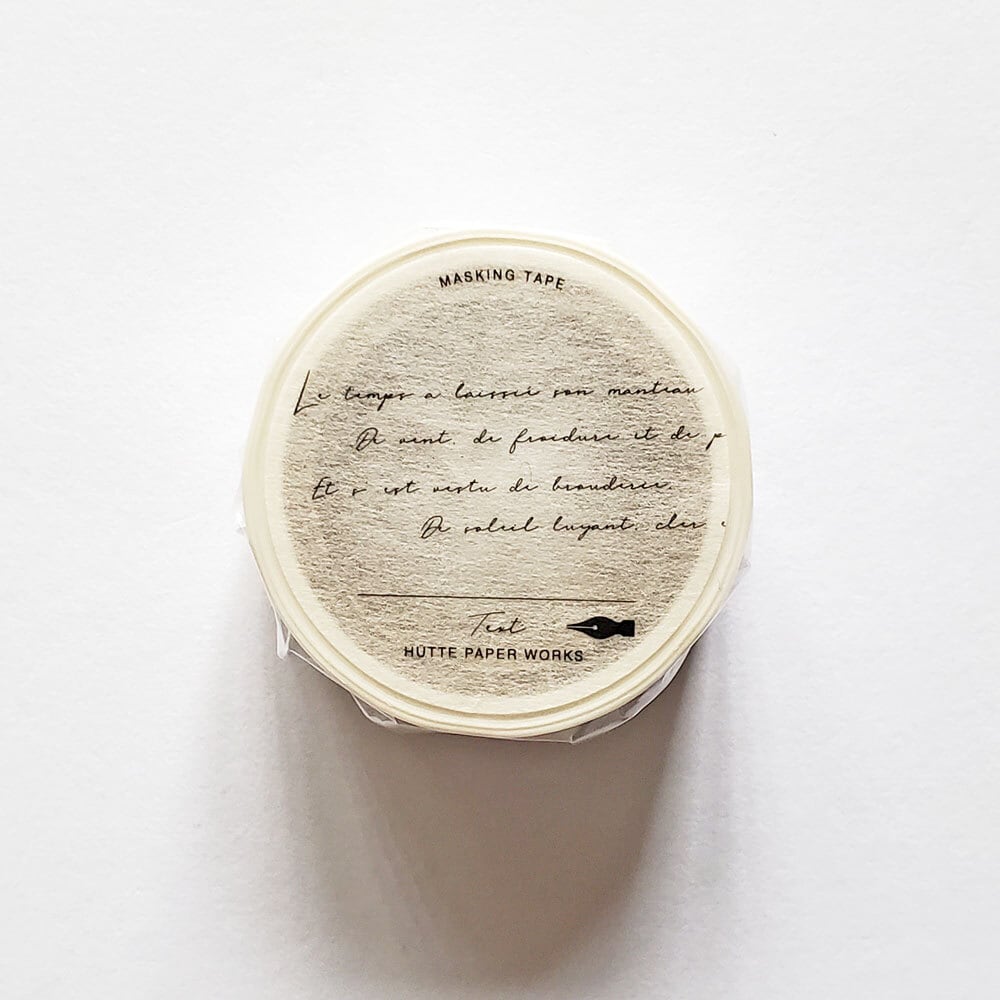 MASKING TAPE
Le temps a laissié son manteau
De vent, de froidure et de p
Et s'est vestu de brouderie,
De soleil luyant, cler e
Text
HÜTTE PAPER WORKS